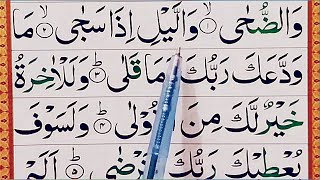 وَالضُّحٰى ۙ﴿۱﴾ وَالَّيْلِ اِذَا سَجٰى ۙ﴿۲﴾ مَا
وَدَّعَكَ رَبُّكَ وَمَا قَلٰى ﴿۳﴾ وَلَلْاٰخِرَةُ
خَيْرٌ لَّكَ مِنَ الْاُوْلٰى ﴿۴﴾ وَلَسَوْفَ
يُعْطِيْكَ رَبُّكَ فَتَرْضٰى ﴿۵﴾ اَلَمْ